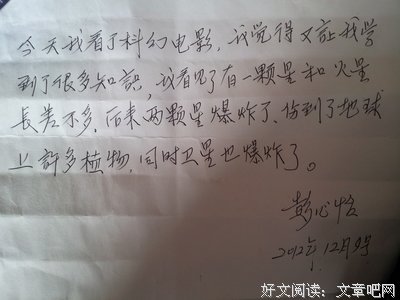 今天我看了科幻电影,我觉得又让我学
到了很多知识,我看见了有一颗星和火星
長差不多,后来两颗星爆炸了、伤到了地球
上許多植物,同时卫星也爆炸了。
彭心怡
2012年12月9号
好文阅读:文章吧网